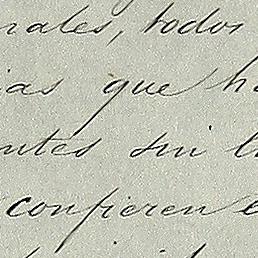 rales, todos
ias que ha
ntes sin l
confieren e